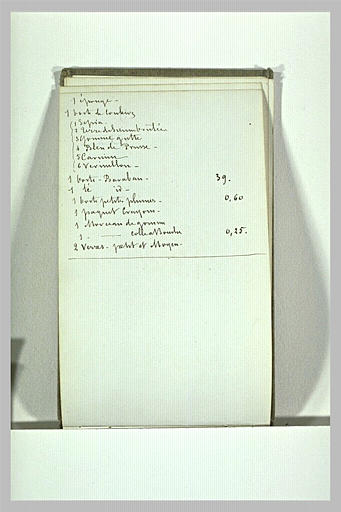 1 éponge -
1 boite de couleurs
1 Sepia
2 Terre de Sienne brûlée
3 Gomme gutte
4 Bleu de Prusse -
5 Carmin
6 Vermillon -
1 boite - 39.
1 id -
1 boite petites plumes - 0,60
1 paquet Crayons -
1 Morceau de gomme
1 - colle à bouche 0,25.
2 Verres - petit et Moyen -